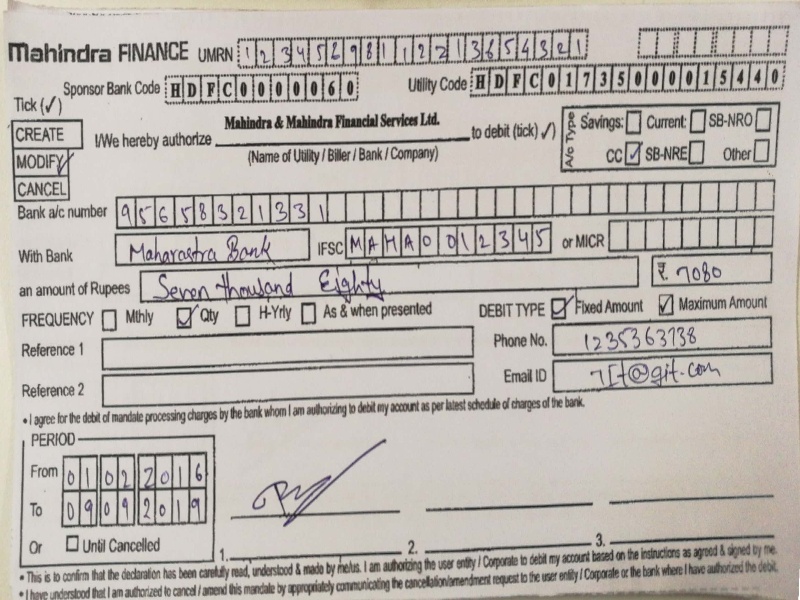 Mahindra FINANCE UMRN 12345698112213654321
Sponsor Bank Code HDFC0000060 Utility Code HDFC01735000015440
Tick (✓)
CREATE
MODIFY ✓
CANCEL
I/We hereby authorize Mahindra & Mahindra Financial Services Ltd. to debit (tick ✓)
(Name of Utility / Biller / Bank / Company)
A/c Type Savings: Current: SB-NRO
CC ✓ SB-NRE Other
Bank a/c number 95658321331
With Bank Maharastra Bank IFSC MAHA0012345 or MICR
an amount of Rupees Seven thousand Eighty ₹ 7080
FREQUENCY Mthly ✓ Qty H-Yrly As & when presented DEBIT TYPE ✓ Fixed Amount ✓ Maximum Amount
Reference 1 Phone No. 1235363738
Reference 2 Email ID @git.com
• I agree for the debit of mandate processing charges by the bank whom I am authorizing to debit my account as per latest schedule of charges of the bank.
PERIOD
From 01022016
To 09092019
Or Until Cancelled
1. 2. 3.
• This is to confirm that the declaration has been carefully read, understood & made by me/us. I am authorizing the user entity / Corporate to debit my account based on the instructions as agreed & signed by me.
• I have understood that I am authorized to cancel / amend this mandate by appropriately communicating the cancellation/amendment request to the user entity / Corporate or the bank where I have authorized the debit.